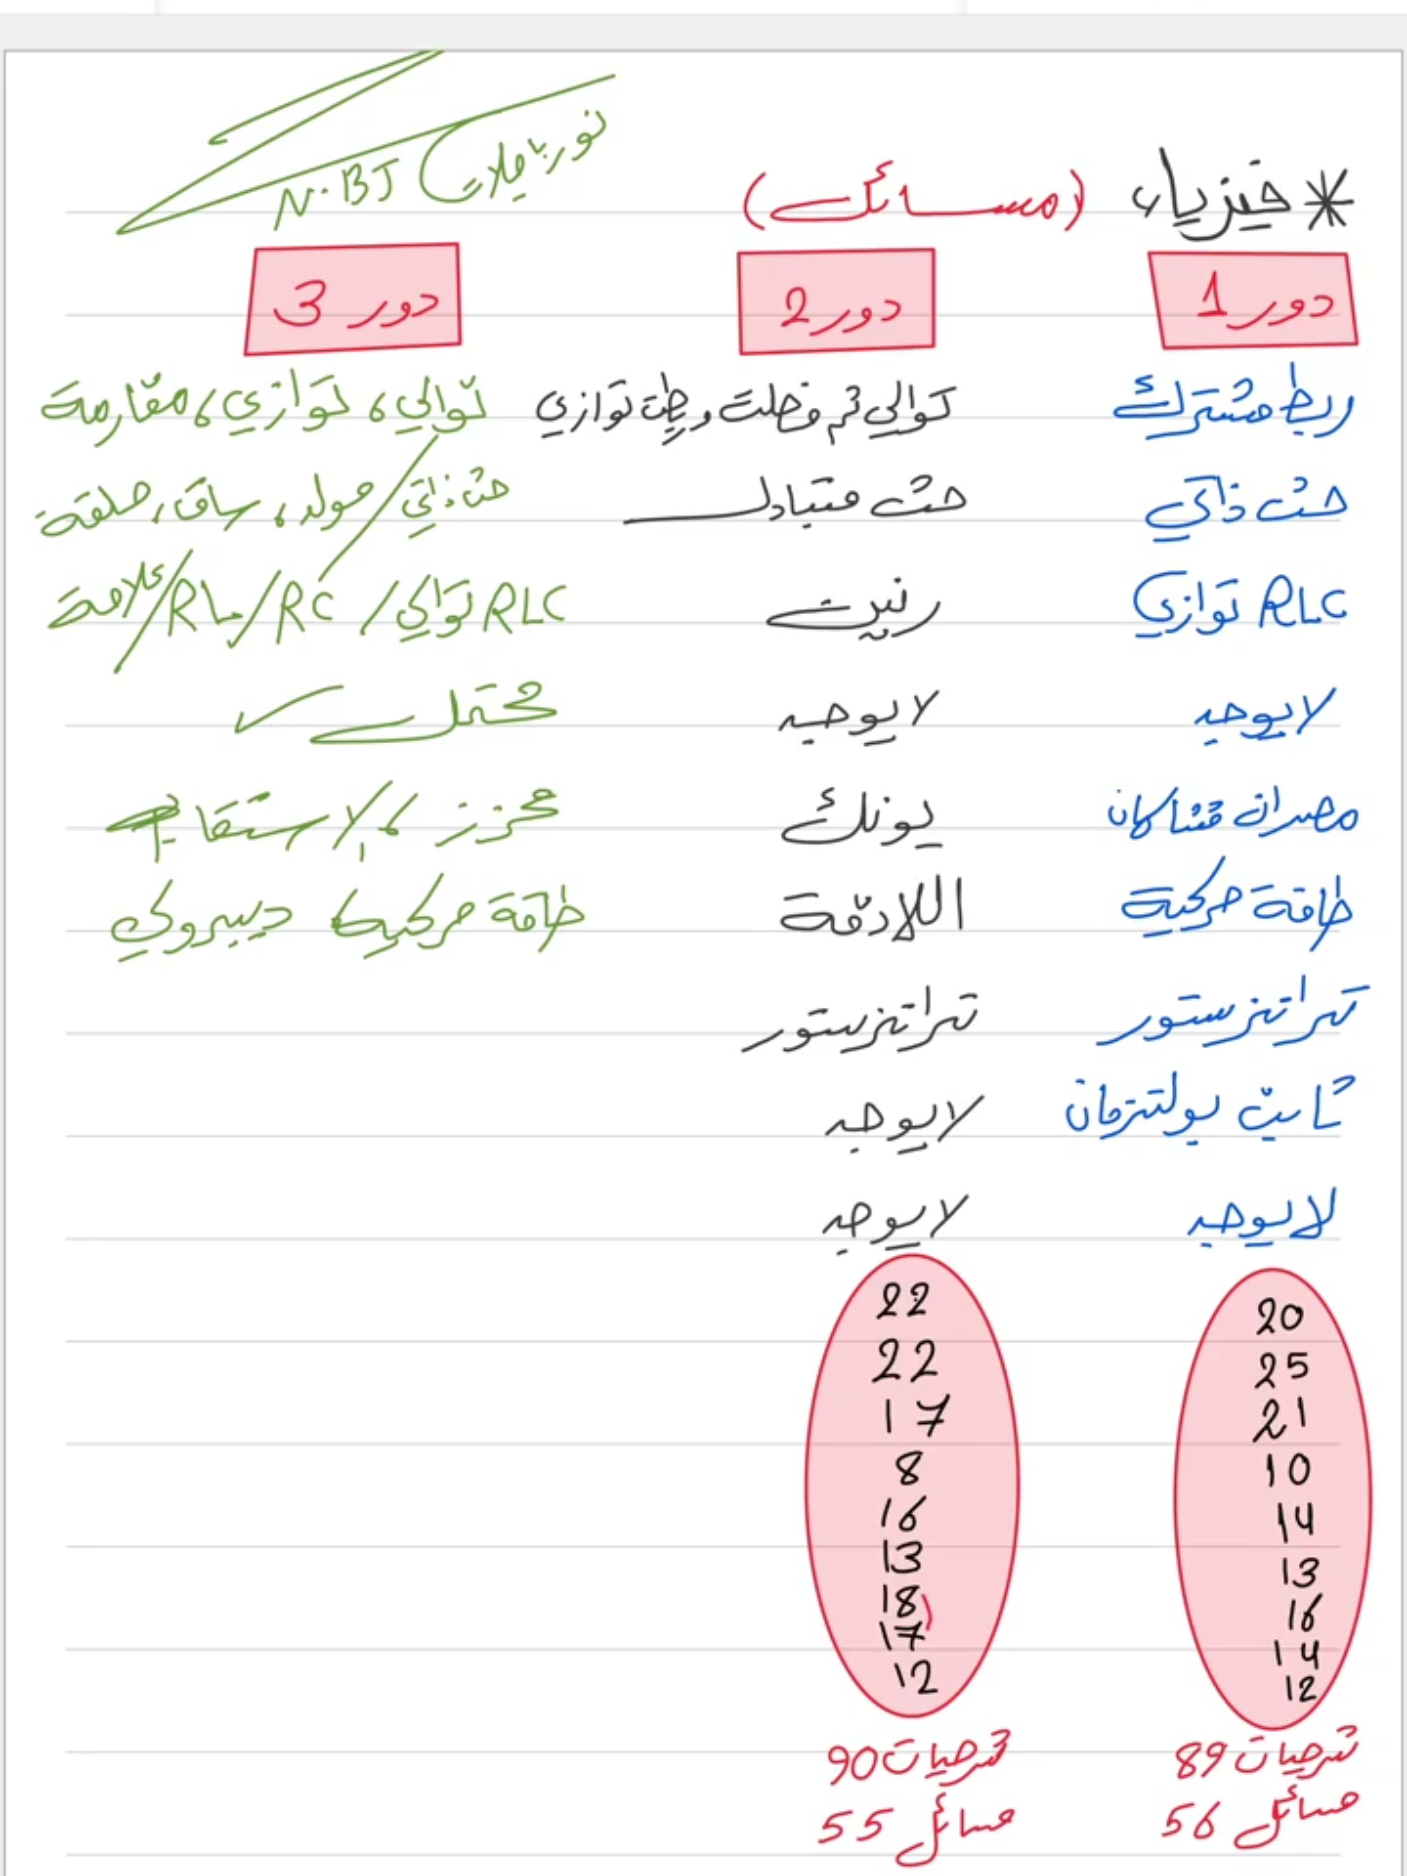 * فيزياء (مسائل)
N.BJ
دور 1 دور 2 دور 3
ربط مشترك توالي ثم فصلت وربطت توازي توالي، توازي، مقاومة
حث ذاتي حث متبادل حث ذاتي/مولد، ساق، حلقة
RLC توازي رنين RLC توالي/RC/RL/
لا يوجد لا يوجد محتمل
مصدران متشاكهان يونك محزز، الإستقطاب
طاقة حركية اللادقة طاقة حركية ديبروكي
ترانزستور ترانزستور
ثابت بولتزمان لا يوجد
لا يوجد لا يوجد
20 22
25 22
21 17
10 8
14 16
13 13
16 18
14 17
12 12
ترجيات 89 ترجيات 90
مسائل 56 مسائل 55